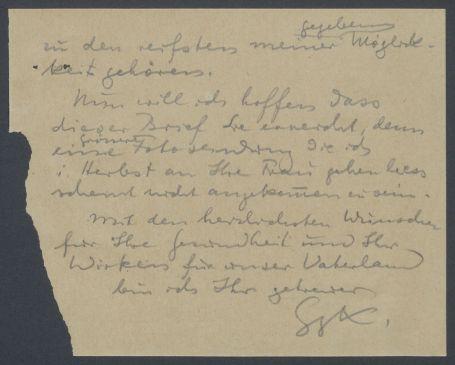 gegebenen
zu den reifsten meiner Möglich-
keit gehören.
Nun will ich hoffen dass
dieser Brief Sie erreicht, denn
eine Fotosendung die ich
i. Herbst an Ihre Frau gehen liess
scheint nicht angekommen zu sein.
Mit den herzlichsten Wünschen
für Ihre Gesundheit und Ihr
Wirken für unser Vaterland
bin ich Ihr getreuer